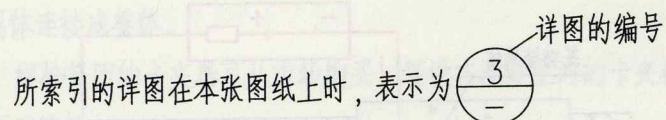 详图的编号
所索引的详图在本张图纸上时，表示为
3
—